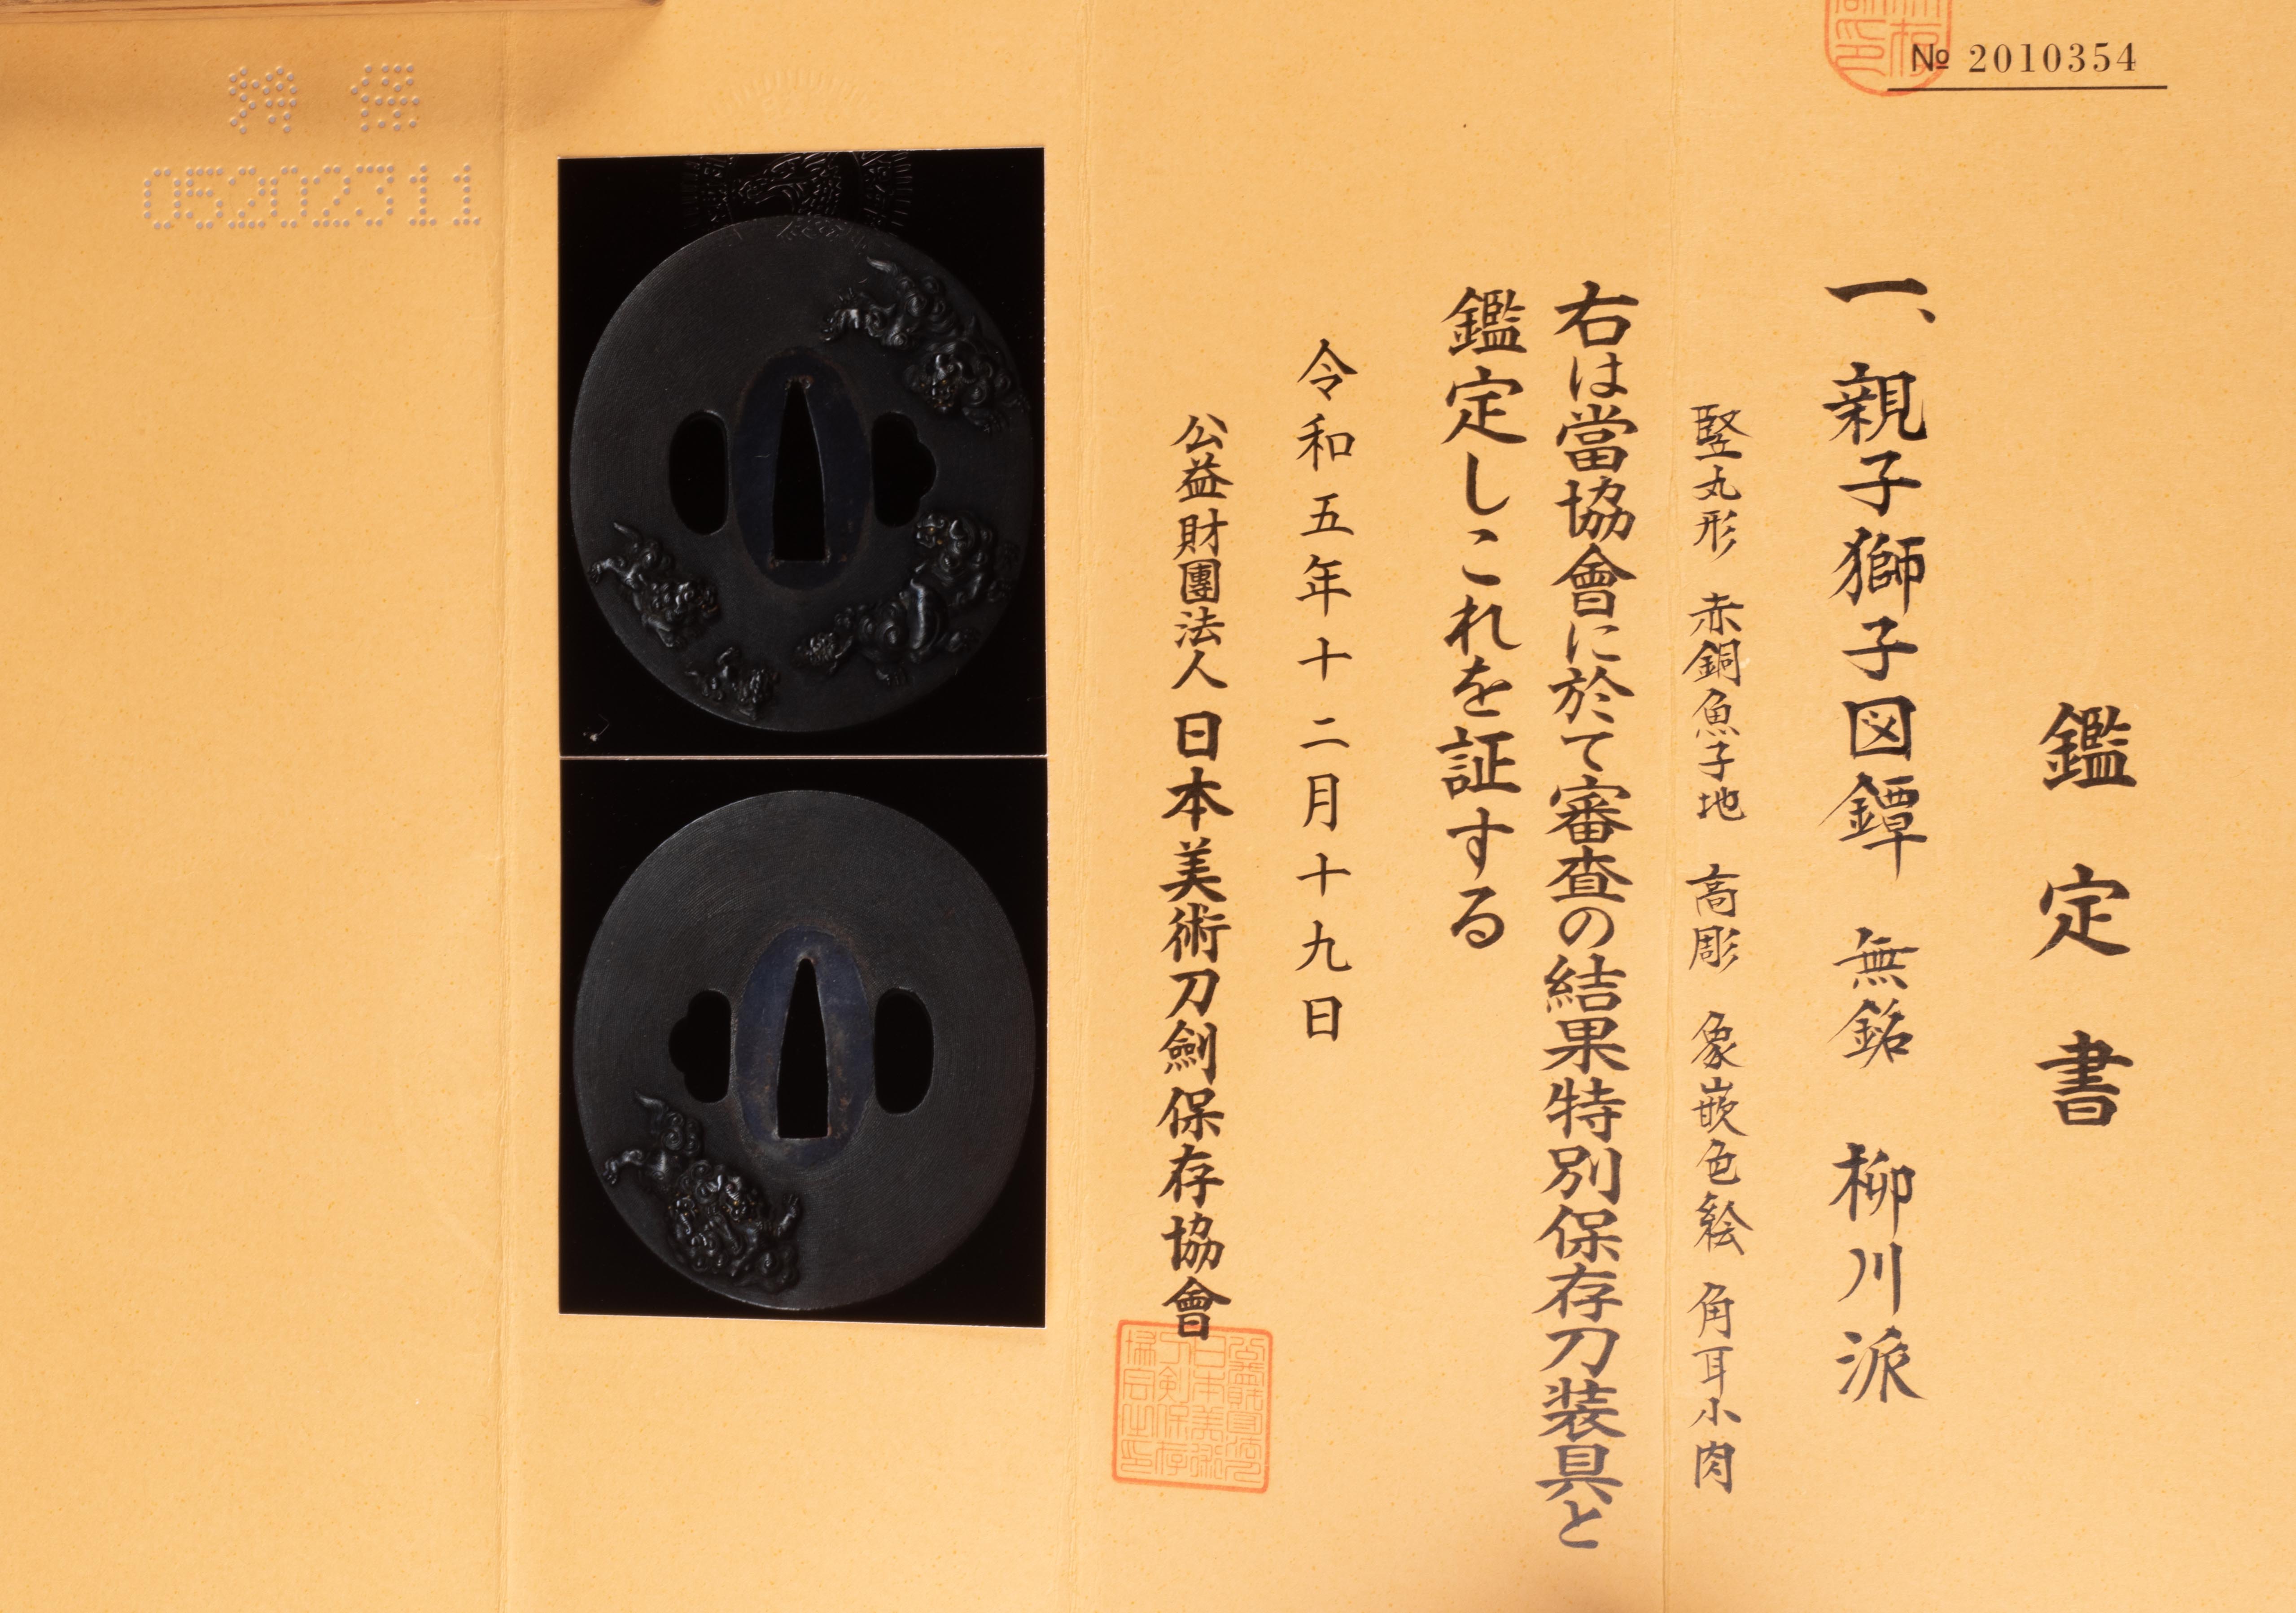 № 2010354
鑑定書
一、親子獅子図鐔 無銘 柳川派
竪丸形 赤銅魚子地 高彫 象嵌色絵 角耳小肉
右は當協會に於て審査の結果特別保存刀装具と
鑑定しこれを証する
令和五年十二月十九日
公益財團法人 日本美術刀劍保存協會
05202311